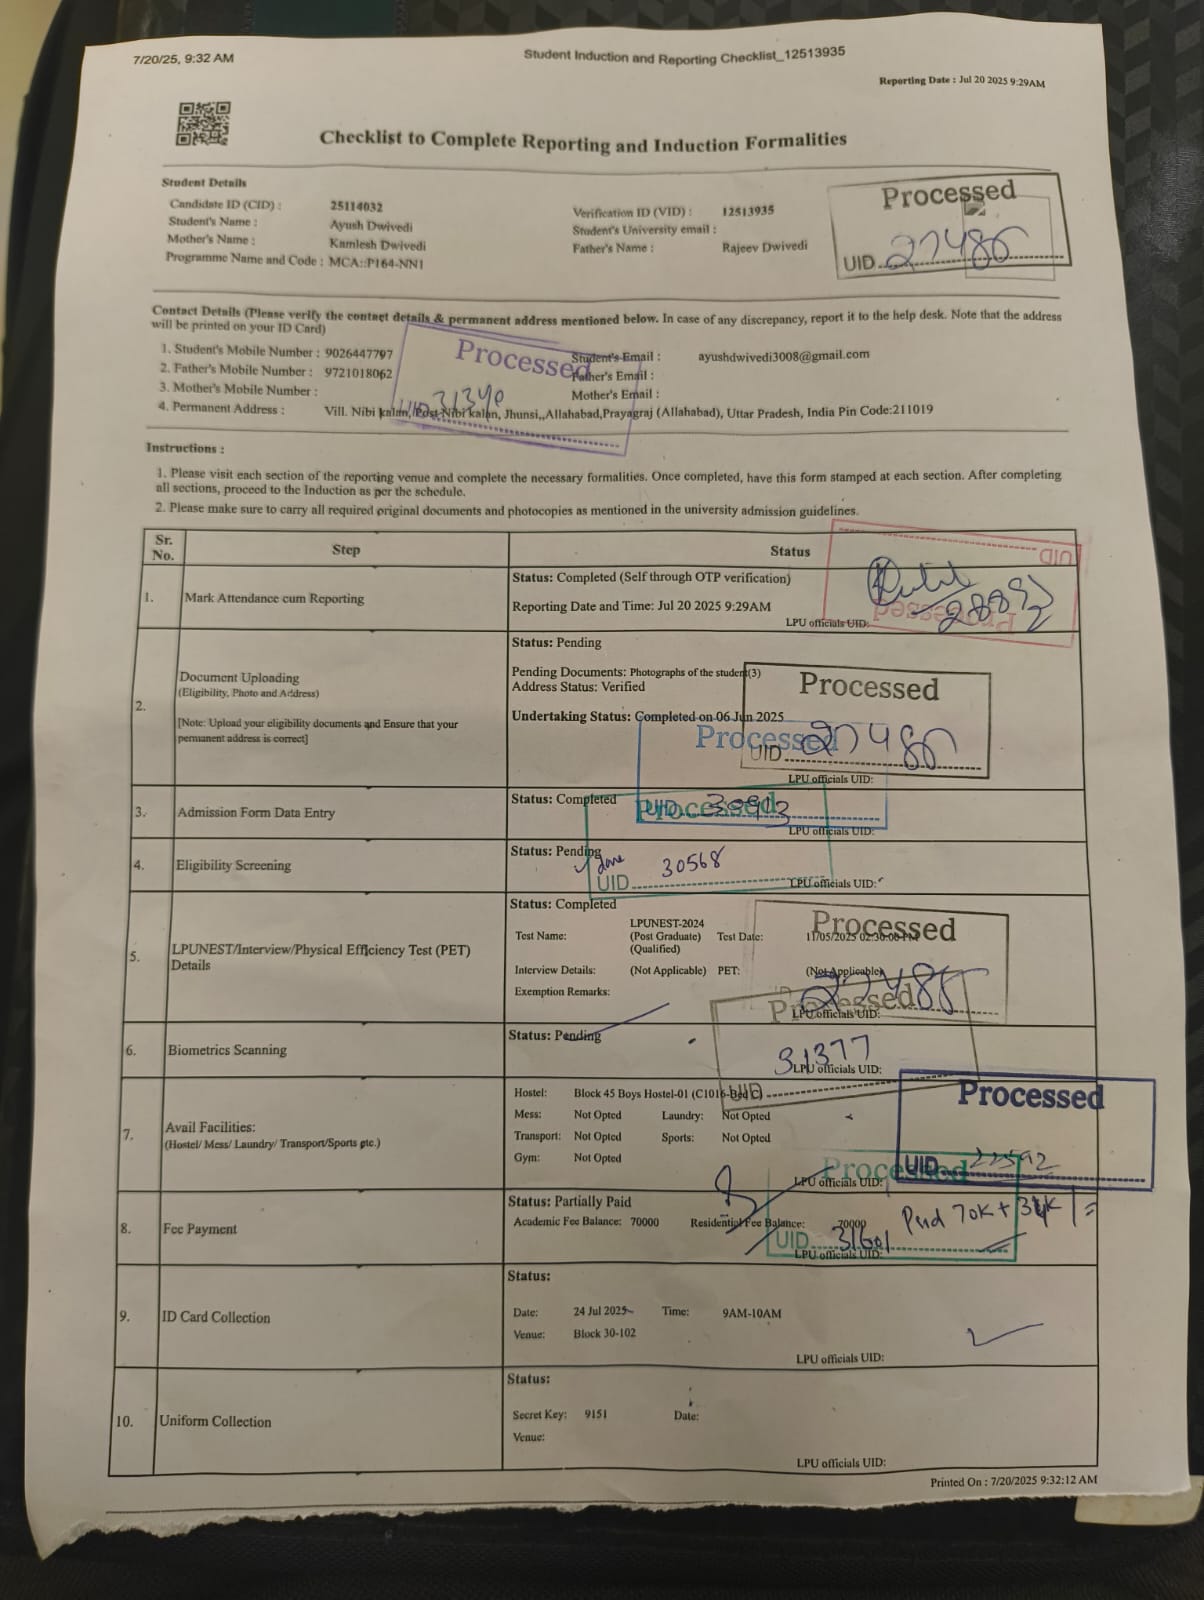 7/20/25, 9:32 AM
Student Induction and Reporting Checklist_12513935
Reporting Date : Jul 20 2025 9:29AM
Checklist to Complete Reporting and Induction Formalities
Processed
UID 27486
Student Details
Candidate ID (CID) : 25114032
Verification ID (VID) : 12513935
Student's Name : Ayush Dwivedi
Student's University email :
Mother's Name : Kamlesh Dwivedi
Father's Name : Rajeev Dwivedi
Programme Name and Code : MCA::P164-NN1
Contact Details (Please verify the contact details & permanent address mentioned below. In case of any discrepancy, report it to the help desk. Note that the address
will be printed on your ID Card)
1. Student's Mobile Number : 9026447797
Student's Email : ayushdwivedi3008@gmail.com
2. Father's Mobile Number : 9721018062
Father's Email :
3. Mother's Mobile Number :
Mother's Email :
4. Permanent Address : Vill. Nibi kalan, Post-Nibi kalan, Jhunsi,,Allahabad,Prayagraj (Allahabad), Uttar Pradesh, India Pin Code:211019
Processed
UID 31340
Instructions :
1. Please visit each section of the reporting venue and complete the necessary formalities. Once completed, have this form stamped at each section. After completing
all sections, proceed to the Induction as per the schedule.
2. Please make sure to carry all required original documents and photocopies as mentioned in the university admission guidelines.
Sr. No. Step Status
1. Mark Attendance cum Reporting
Status: Completed (Self through OTP verification)
Reporting Date and Time: Jul 20 2025 9:29AM
LPU officials UID:
Processed
UID
2. Document Uploading
(Eligibility, Photo and Address)
[Note: Upload your eligibility documents and Ensure that your
permanent address is correct]
Status: Pending
Pending Documents: Photographs of the student(3)
Address Status: Verified
Undertaking Status: Completed on 06 Jun 2025
LPU officials UID:
Processed
UID 27486
Processed
UID 30913
3. Admission Form Data Entry
Status: Completed
LPU officials UID:
Processed
4. Eligibility Screening
Status: Pending
done
UID 30568
LPU officials UID:
5. LPUNEST/Interview/Physical Efficiency Test (PET)
Details
Status: Completed
Test Name: LPUNEST-2024 (Post Graduate) (Qualified) Test Date: 11/05/2025 02:30:00 PM
Interview Details: (Not Applicable) PET: (Not Applicable)
Exemption Remarks:
LPU officials UID:
Processed
Processed
6. Biometrics Scanning
Status: Pending
31377
LPU officials UID:
UID
7. Avail Facilities:
(Hostel/ Mess/ Laundry/ Transport/Sports etc.)
Hostel: Block 45 Boys Hostel-01 (C1016-Bed C)
Mess: Not Opted Laundry: Not Opted
Transport: Not Opted Sports: Not Opted
Gym: Not Opted
LPU officials UID:
Processed
UID 22592
Processed
8. Fee Payment
Status: Partially Paid
Academic Fee Balance: 70000 Residential Fee Balance: 70000
UID 31601
LPU officials UID:
9. ID Card Collection
Status:
Date: 24 Jul 2025 Time: 9AM-10AM
Venue: Block 30-102
LPU officials UID:
10. Uniform Collection
Status:
Secret Key: 9151 Date:
Venue:
LPU officials UID:
Printed On : 7/20/2025 9:32:12 AM